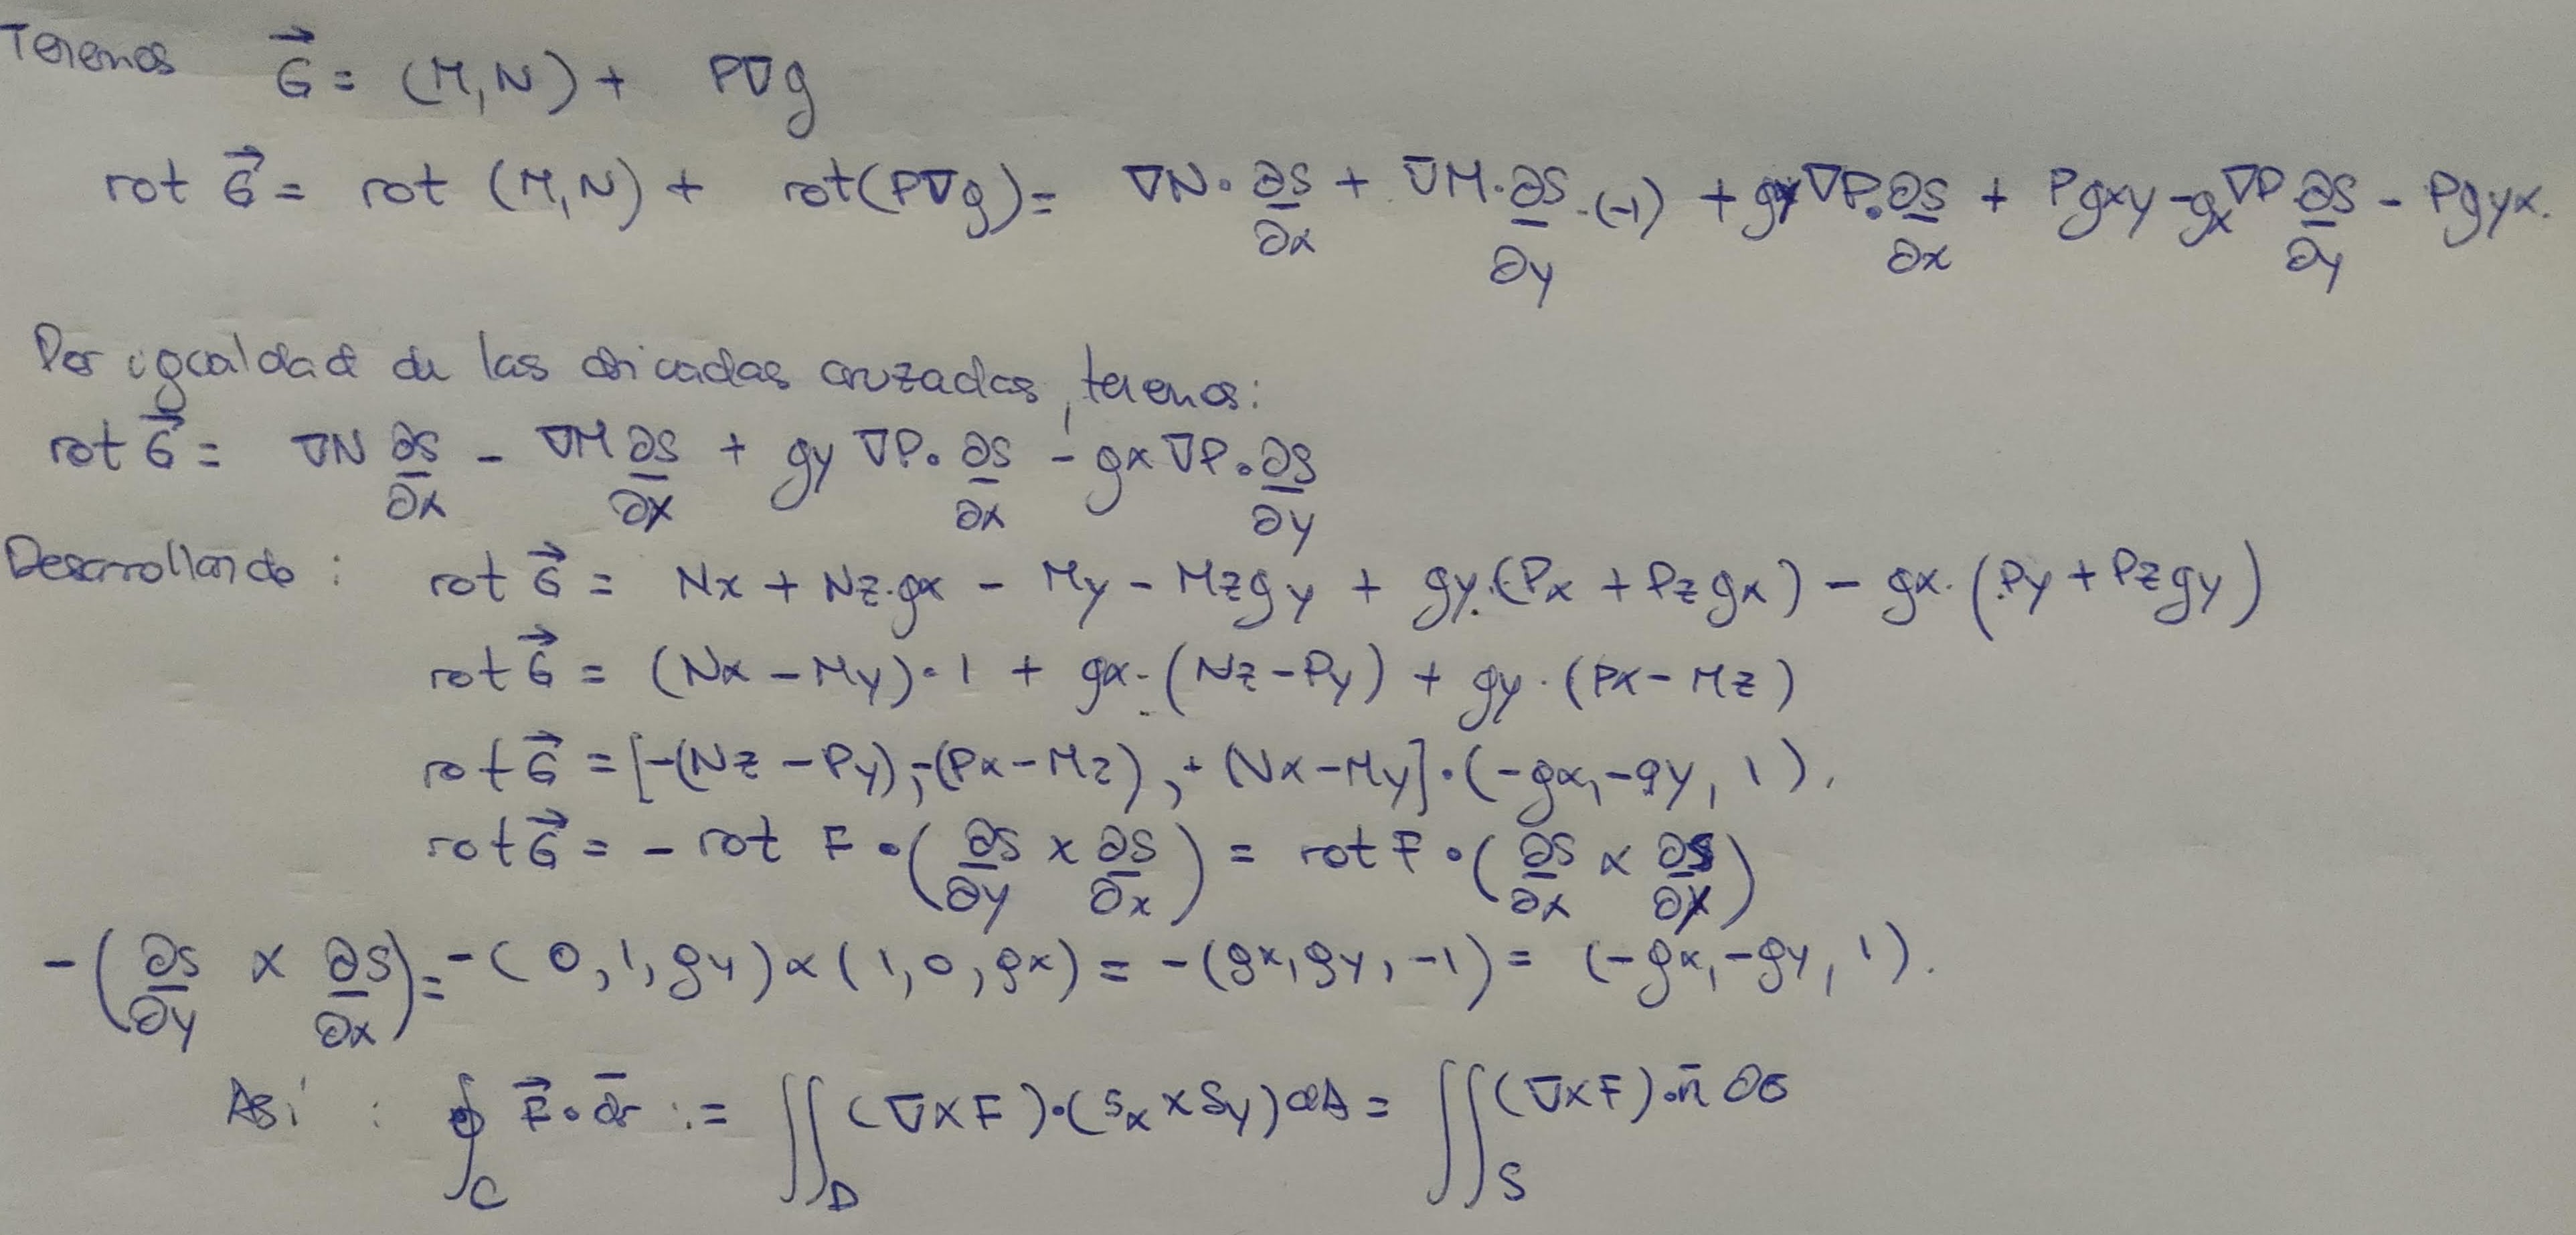 Tenemos G⃗ = (M,N) + P∇g
rot G⃗ = rot (M,N) + rot(P∇g) = ∇N·∂S/∂x + ∇M·∂S/∂y·(-1) + gy∇P·∂S/∂x + Pgxy - gx∇P·∂S/∂y - Pgyx.
Por igualdad de las derivadas cruzadas, tenemos:
rot G⃗ = ∇N ∂S/∂x - ∇M ∂S/∂y + gy ∇P·∂S/∂x - gx ∇P·∂S/∂y
Desarrollando: rot G⃗ = Nx + Nz·gx - My - Mzgy + gy·(Px + Pzgx) - gx·(Py + Pzgy)
rot G⃗ = (Nx - My)·1 + gx·(Nz - Py) + gy·(Px - Mz)
rot G⃗ = [-(Nz - Py), -(Px - Mz), +(Nx - My]·(-gx, -gy, 1).
rot G⃗ = - rot F·(∂S/∂y × ∂S/∂x) = rot F·(∂S/∂x × ∂S/∂y)
-(∂S/∂y × ∂S/∂x) = -(0,1,gy)×(1,0,gx) = -(gx,gy,-1) = (-gx,-gy,1).
Así: ∮_C F⃗·d̄r := ∬_D (∇×F)·(Sx×Sy)dA = ∬_S (∇×F)·n̄ ∂σ